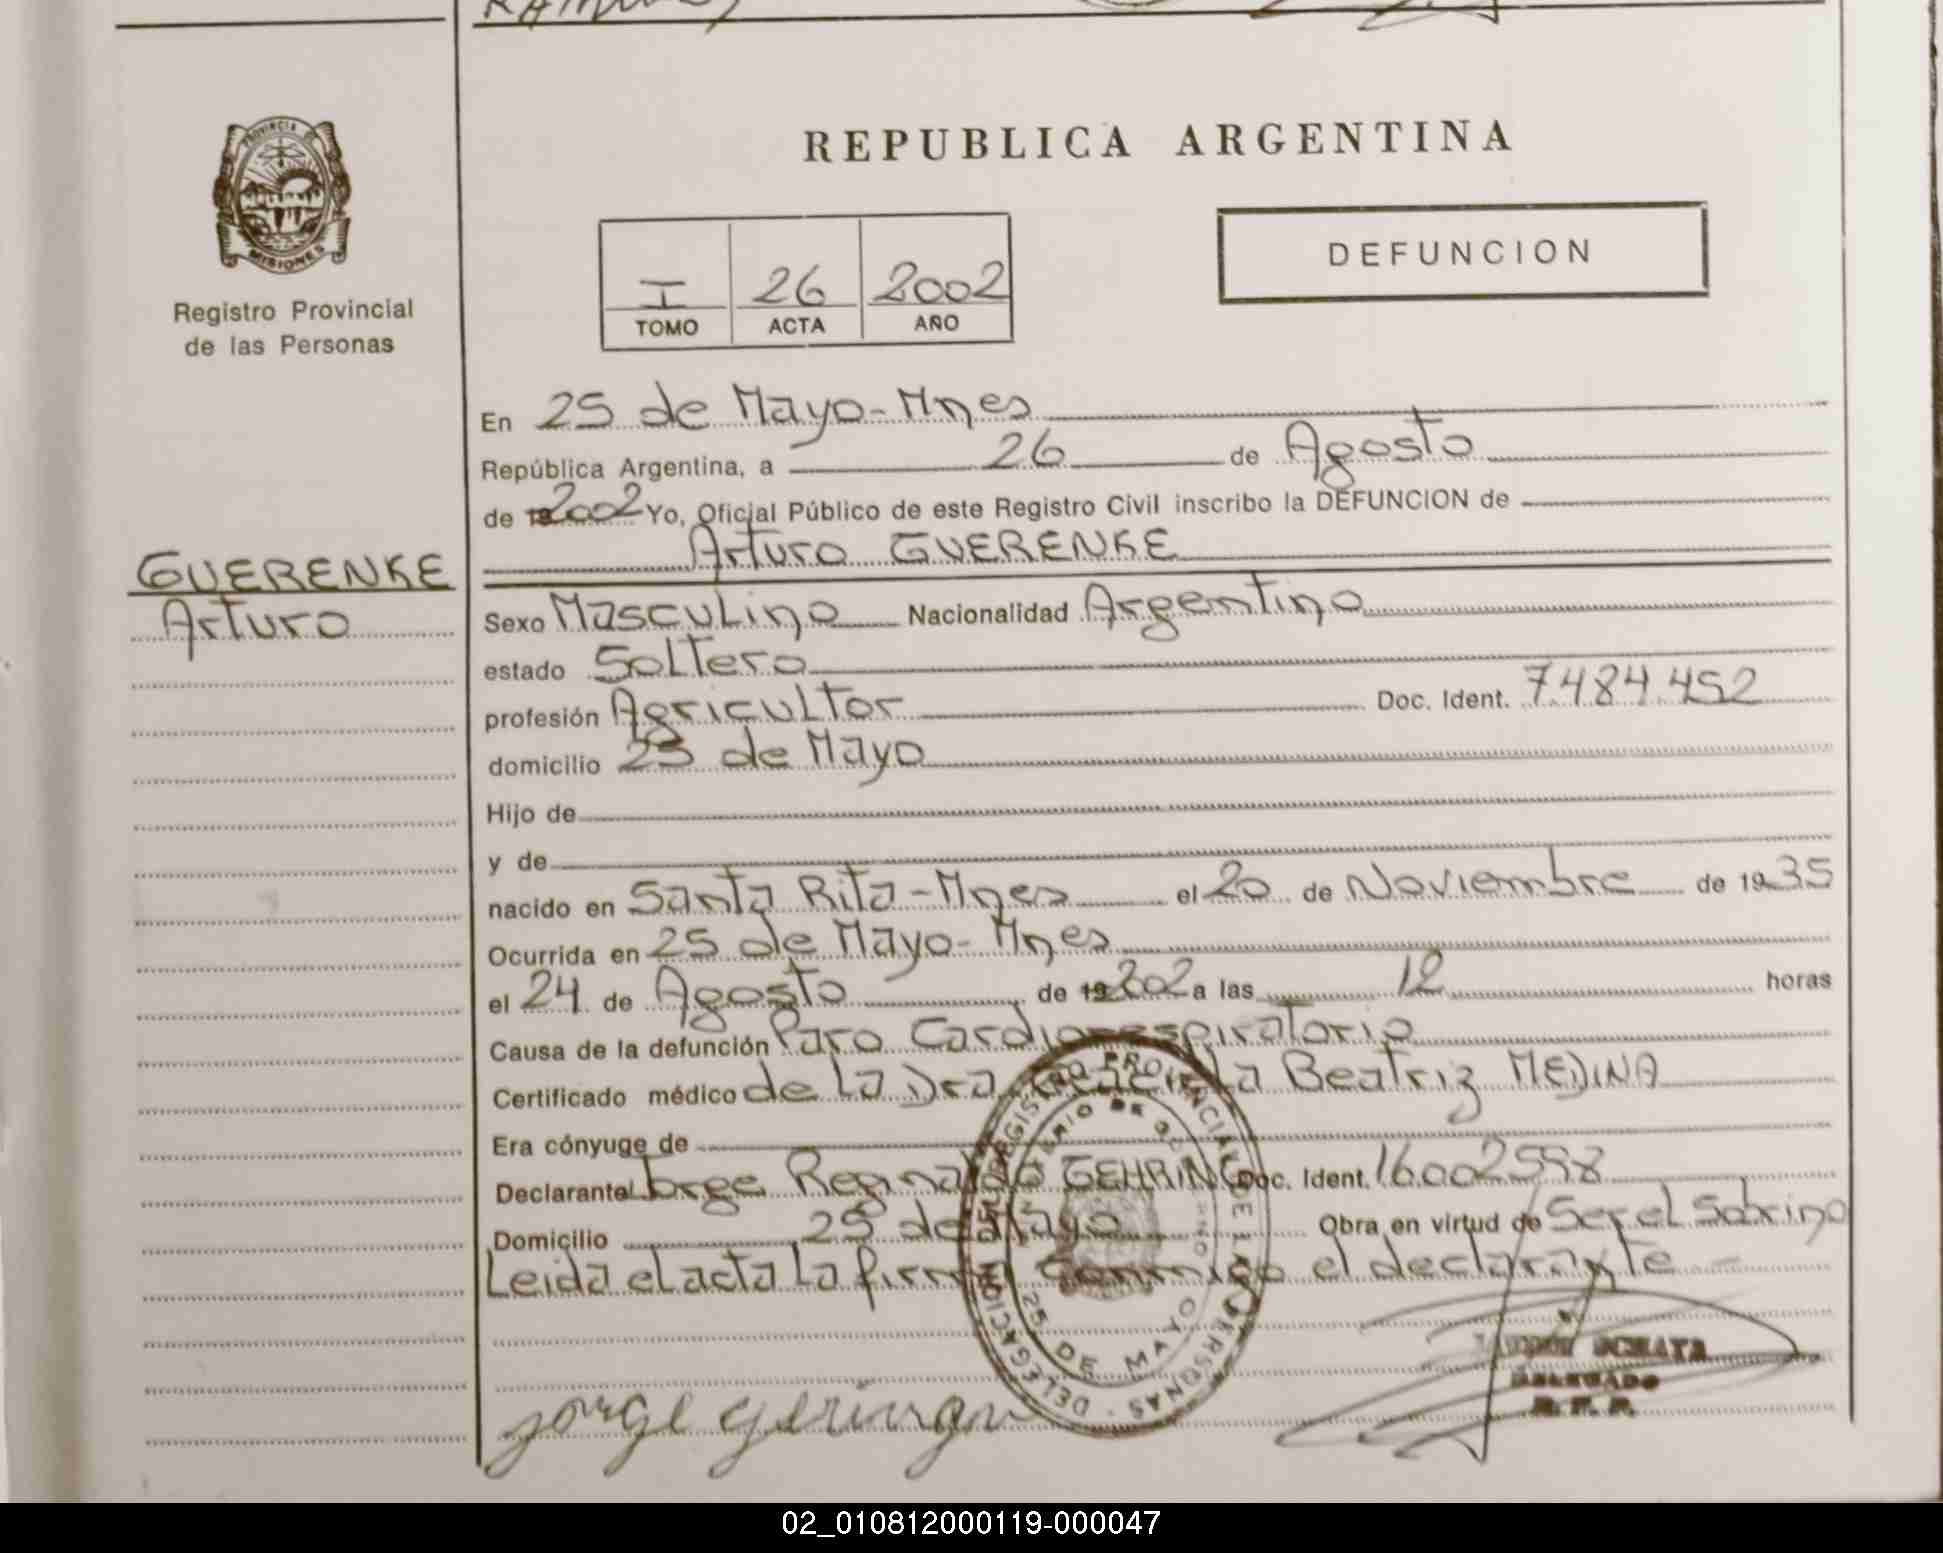 REPUBLICA ARGENTINA
PROVINCIA DE MISIONES
Registro Provincial
de las Personas
I 26 2002
TOMO ACTA AÑO
DEFUNCION
En 25 de Mayo-Mnes
República Argentina, a 26 de Agosto
de 2002 Yo, Oficial Público de este Registro Civil inscribo la DEFUNCION de
Arturo GUERENKE
GUERENKE
Arturo
Sexo Masculino Nacionalidad Argentino
estado Soltero
profesión Agricultor Doc. Ident. 7484.452
domicilio 25 de Mayo
Hijo de
y de
nacido en Santa Rita-Mnes el 20 de Noviembre de 1935
Ocurrida en 25 de Mayo-Mnes
el 24 de Agosto de 2002 a las 12 horas
Causa de la defunción Paro Cardiorespiratorio
Certificado médico de la Dra Beatriz MEDINA
Era cónyuge de
Declarante Jorge Reginaldo GEHRING Doc. Ident. 16002598
Domicilio 25 de Mayo Obra en virtud de Ser el Sobrino
Leida el acta la firma conmigo el declarante
REGISTRO PROVINCIAL DE LAS PERSONAS - DELEGACION
25 DE MAYO
DELEGADO
R. P. P.
02_010812000119-000047